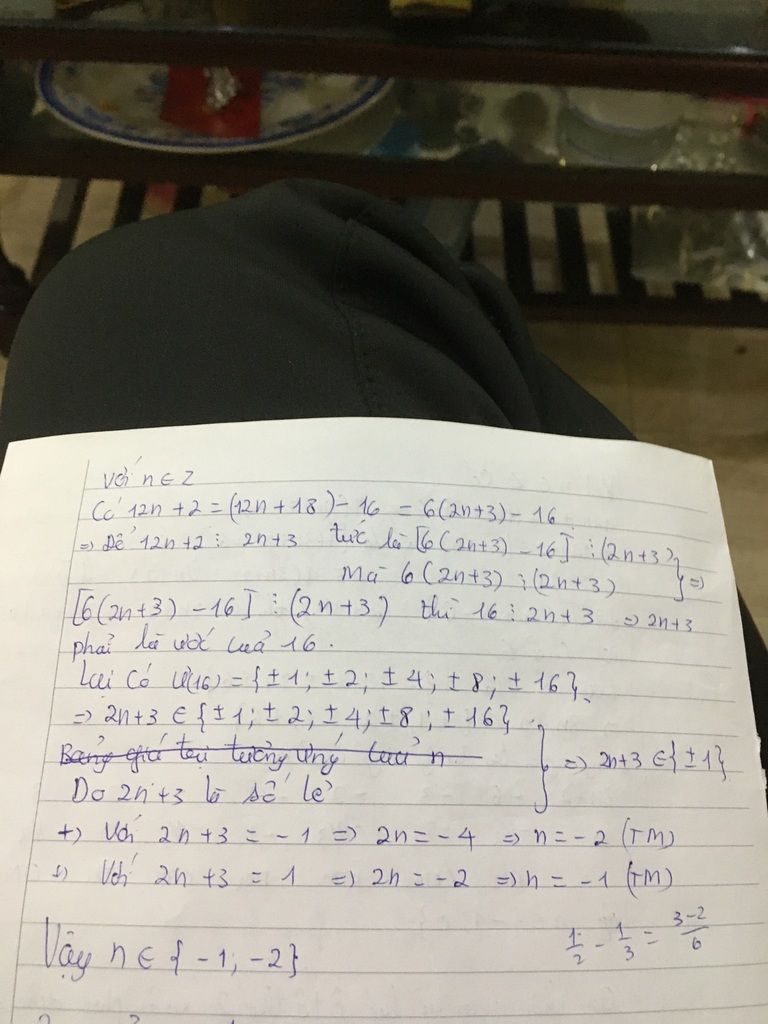 Với n ∈ Z
Có 12n + 2 = (12n + 18) - 16 = 6(2n+3) - 16
=> Để 12n+2 ⋮ 2n+3 tức là [6(2n+3) - 16] ⋮ (2n+3)
Mà 6(2n+3) ⋮ (2n+3) } =>
[6(2n+3) - 16] ⋮ (2n+3) thì 16 ⋮ 2n+3 => 2n+3
phải là ước của 16.
Lại có Ư(16) = {±1; ±2; ±4; ±8; ±16}
=> 2n+3 ∈ {±1; ±2; ±4; ±8; ±16}
Bảng giá trị tương ứng của n
} => 2n+3 ∈ {±1}
Do 2n+3 là số lẻ
+) Với 2n+3 = -1 => 2n = -4 => n = -2 (TM)
+) Với 2n+3 = 1 => 2n = -2 => n = -1 (TM)
1/2 - 1/3 = 3-2/6
Vậy n ∈ {-1; -2}